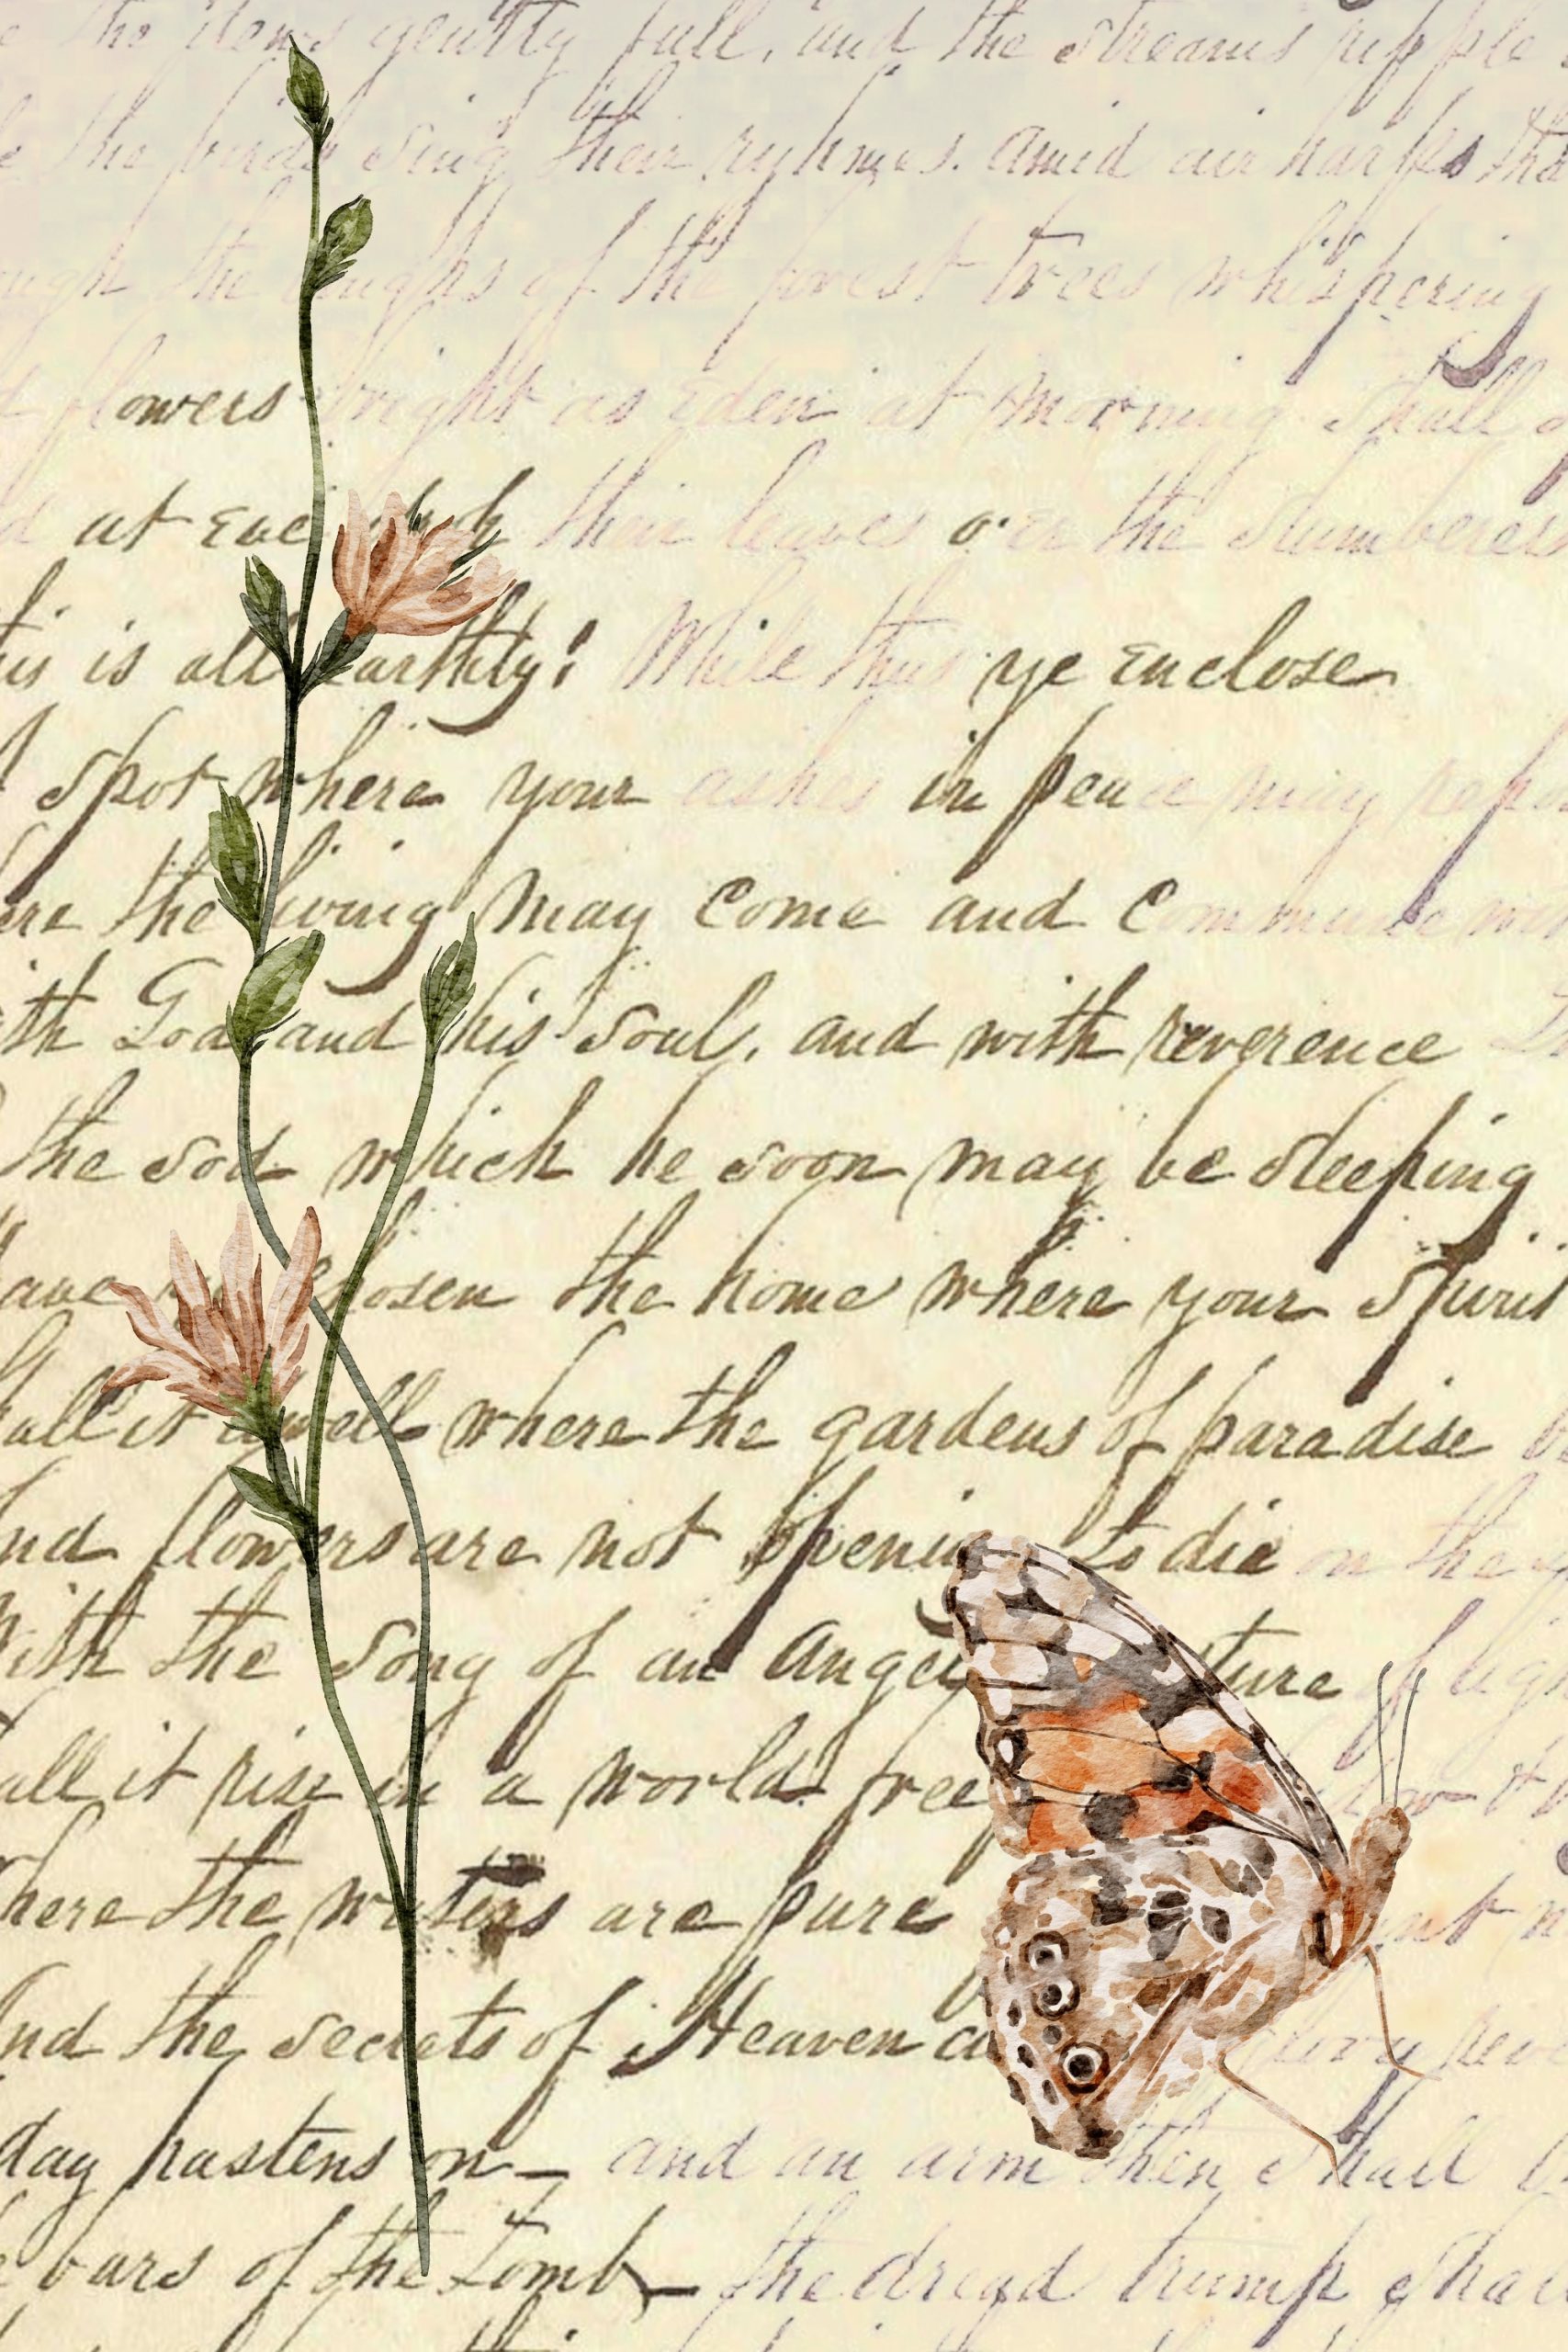 the dews gently fall, and the streams ripple
the birds sing their ryhmes. amid air harps
the boughs of the forest trees whispering
flowers bright as Eden at morning shall
at Eve their leaves o'er the slumberers
is is all Earthly; While thus ye Enclose
Spot where your ashes in peace may
the living may Come and Commune
th God and his Soul, and with reverence
the sod which he soon may be sleeping
chosen the home where your Spirit
all it dwell where the gardens of paradise
nd flowers are not opening to die on the
With the song of an Angel ture of
all it rise in a world free
here the waters are pure
nd the secrets of Heaven
day hastens on — and an arm then shall
bars of the Tomb — the dread trump shall